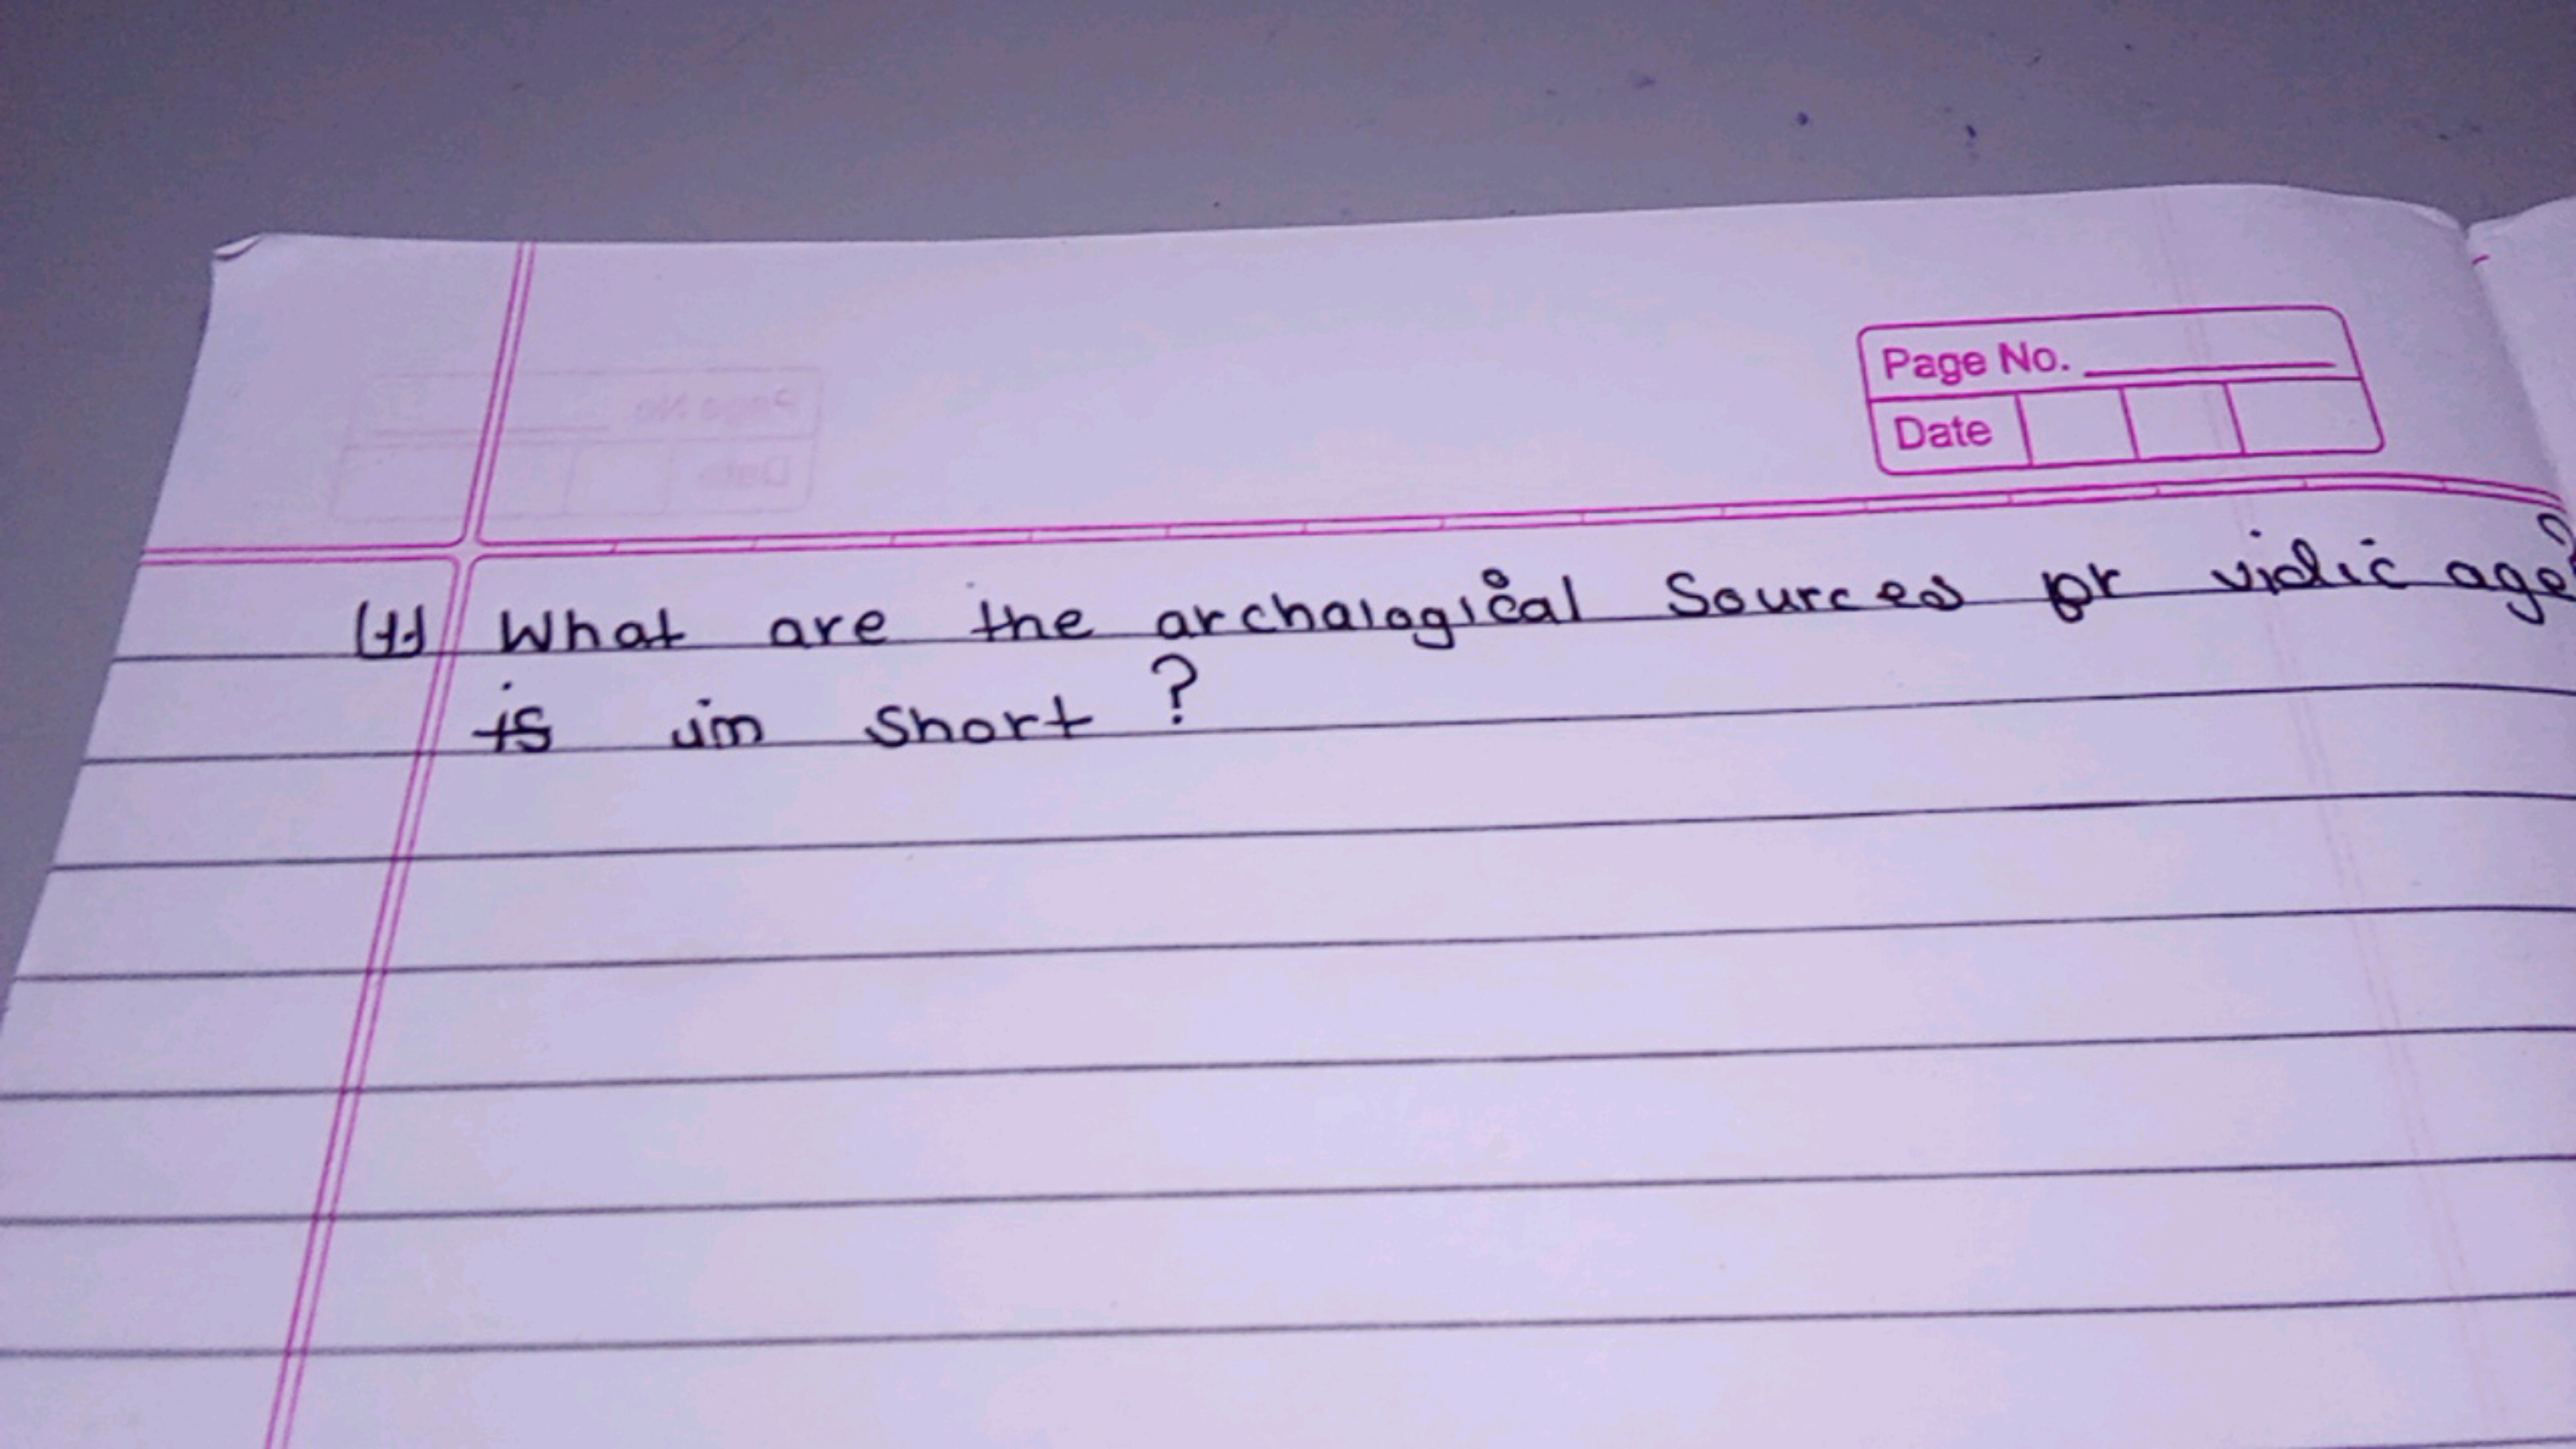 Page No.
Date
(1) What are the archalogical Sources or vidic age?
is in short ?